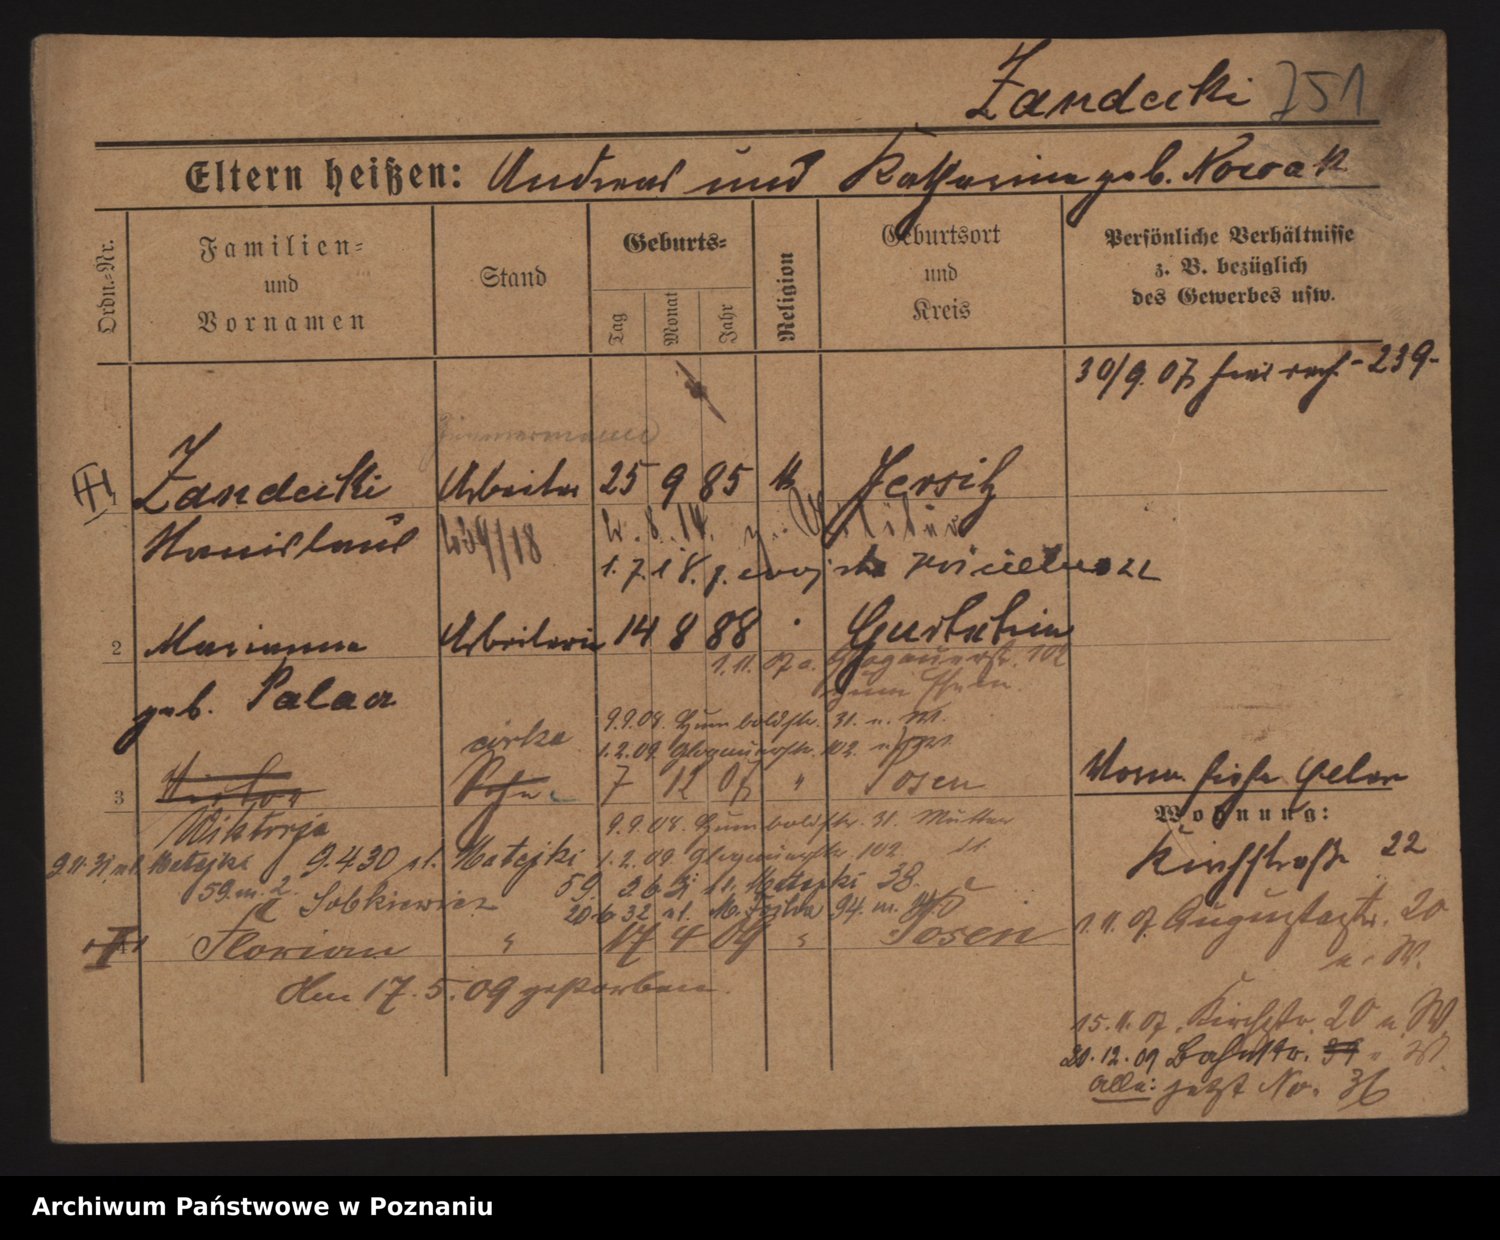 Zandecki 751
Eltern heißen: Andreas und Katharina geb. Nowak
Ordn.-Nr.
Familien-
und
Vornamen
Stand
Geburts-
Tag
Monat
Jahr
Religion
Geburtsort
und
Kreis
Persönliche Verhältnisse
z. B. bezüglich
des Gewerbes usw.
30/9.07 - 239-
Zimmermann
1 Zandecki Arbeiter 25 9 85 k Jersitz
Stanislaus 8.14.
1.7.18. z. wojska 22
2 Marianna Arbeiterin 14 8 88 Gurtschin
1.11.07 a. Glogauerstr. 102
geb. Palacz zum Ehem.
9.9.08. Humboldtstr. 31. u. W.
córka 1.2.09. Glogauerstr. 102.
3 Sohn 7 12 07 " Posen
Wiktorja 9.9.08. Humboldtstr. 31. Mutter
Matejki 9.4.30 ul. Matejki 1.2.09. Glogauerstr. 102 "
59 m. 2. 59. ul. Matejki 38.
Sobkiewicz 32 ul. M. Focha 94. m.
4 Florian " 17 4 09 " Posen
Am 17.5.09 gestorben.
Vorm. siehe Eltern
Wohnung:
Kirchstraße 22
1.11.07 Augustastr. 20
u. W.
15.11.07. Kirchstr. 20 u. W.
20.12.09 Bahnstr. 39 " W.
alle: jetzt No. 36
Archiwum Państwowe w Poznaniu